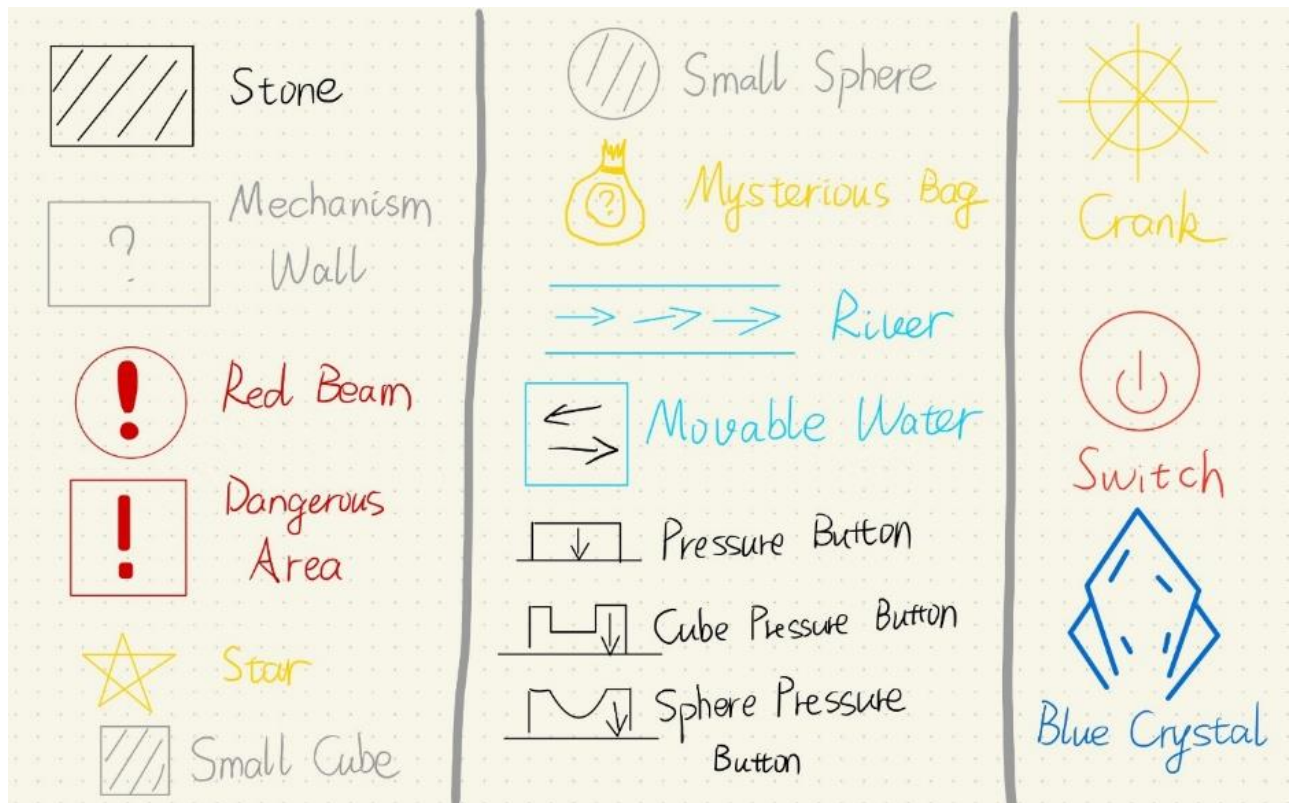 Stone
?
Mechanism
Wall
!
Red Beam
!
Dangerous
Area
Star
Small Cube
Small Sphere
?
Mysterious Bag
River
Movable Water
Pressure Button
Cube Pressure Button
Sphere Pressure
Button
Crank
Switch
Blue Crystal